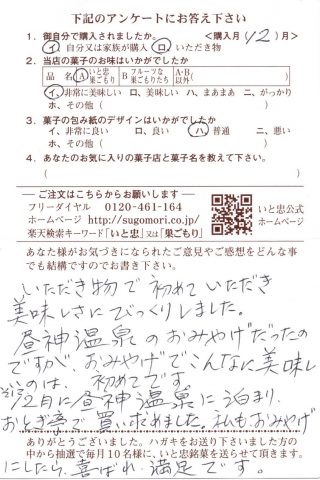 下記のアンケートにお答え下さい
1. 御自分で購入されましたか。 <購入月 12 月>
イ, 自分又は家族が購入 ロ, いただき物
2. 当店の菓子のお味はいかがでしたか
品 名 A いと忠巣ごもり B フルーツな巣ごもりたち A・B以外( )
イ, 非常に美味しい ロ、美味しい ハ、まあまあ ニ、がっかり
ホ、その他( )
3. 菓子の包み紙のデザインはいかがでしたか
イ、非常に良い ロ、良い ハ, 普通 ニ、悪い
ホ、その他( )
4. あなたのお気に入りの菓子店と菓子名を教えて下さい。
( )
ご注文はこちらからお願いします
フリーダイヤル 0120-461-164
ホームページ http://sugomori.co.jp/
楽天検索キーワード「いと忠」又は「巣ごもり」
いと忠公式
ホームページ
あなた様がお気づきになられたご意見やご感想をどんな事
でも結構ですのでお書き下さい。
いただき物で初めていただき
美味しさにびっくりしました。
昼神温泉のおみやげだったの
ですが、おみやげでこんなに美味し
いのは、初めてです。
12月に昼神温泉に泊まり、
おとぎ亭で買い求めました。私もおみやげ
ありがとうございました。ハガキをお送り下さいました方の
中から抽選で毎月10名様に、いと忠銘菓を送らせて頂きます。
にしたら、喜ばれ、満足です。